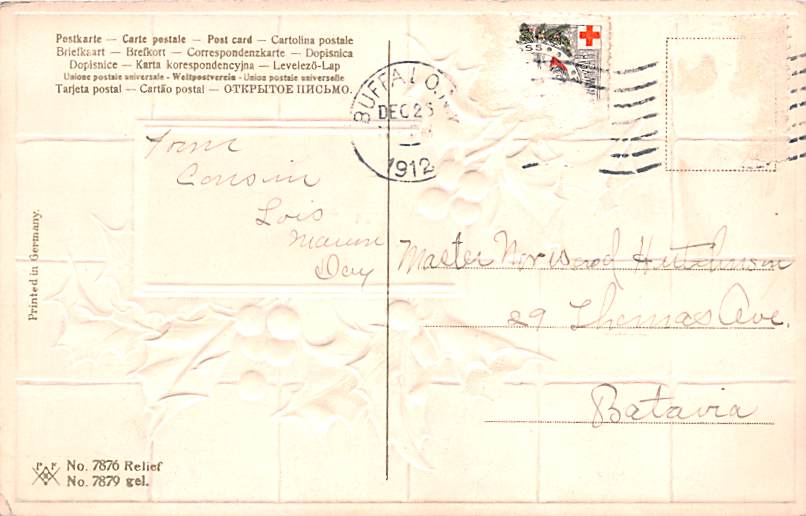 Postkarte — Carte postale — Post card — Cartolina postale
Briefkaart — Brefkort — Correspondenzkarte — Dopisnica
Dopisnice — Karta korespondencyjna — Levelező-Lap
Unione postale universale - Weltpostverein - Union postale universelle
Tarjeta postal — Cartão postal — ОТКРЫТОЕ ПИСЬМО.
BUFFALO, N.Y.
DEC 25
1912
from
Cousin
Lois
Day
Master Norwood Hutchinson
29 Thomas Ave.
Batavia
Printed in Germany.
P F B
No. 7876 Relief
No. 7879 gel.